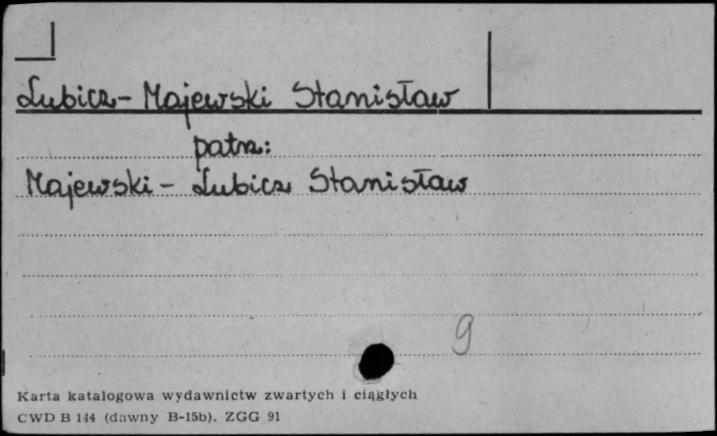 Lubicz-Majewski Stanisław
patrz:
Majewski-Lubicz Stanisław
9
Karta katalogowa wydawnictw zwartych i ciągłych
CWD B 144 (dawny B-15b). ZGG 91